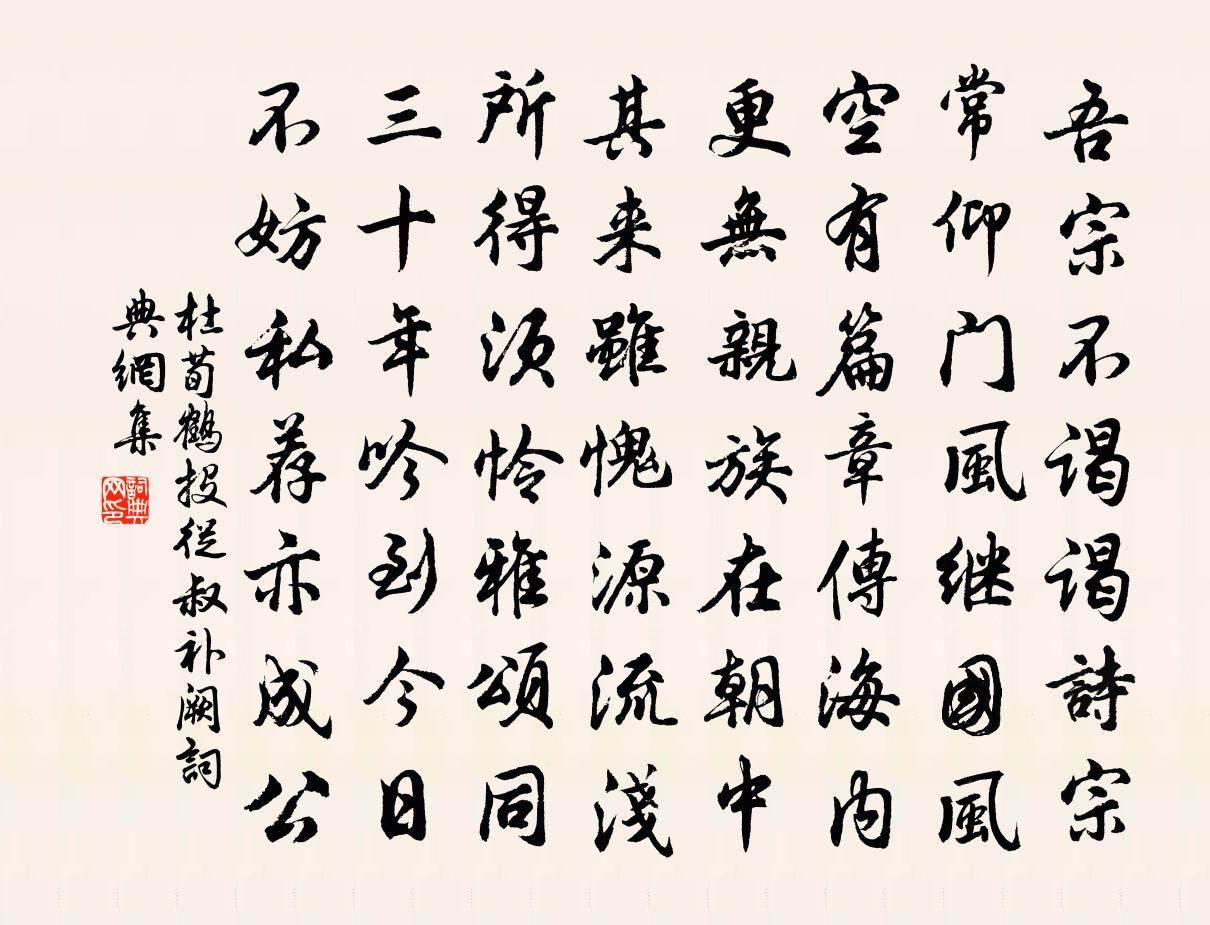 吾宗不谒谒詩宗
常仰门風继國風
空有篇章傳海内
更無親族在朝中
其来雖愧源流淺
所得须怜雅頌同
三十年吟到今日
不妨私荐亦成公
杜荀鶴投從叔补阙詞
典網集
詞典
网印